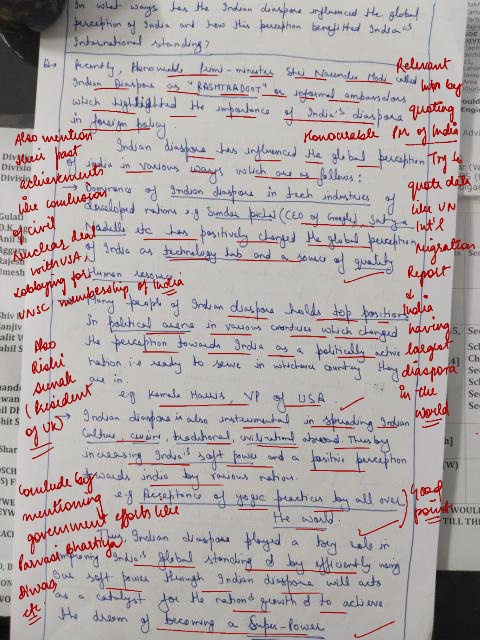 In what ways has the Indian diaspora influenced the global
perception of India and how this perception benefitted India's
International standing?
Recently, Honourable Prime-minister Shri Narendra Modi called
Indian Diaspora as "RASHTRADOOT" or informal ambassadors
which highlighted the importance of India's diaspora
in foreign policy.
Indian diaspora has influenced the global perception
of India in various ways which are as follows:
→ Dominance of Indian diaspora in tech industries of
developed nations e.g Sundar pichai (CEO of Google), Satya
Nadella etc has positively changed the global perception
of India as technology hub and a source of quality
Human resource.
Many people of Indian diaspora holds top position
in political arena in various countries which changed
the perception towards India as a politically active
nation i.e ready to serve in whichever country they
are in.
e.g Kamala Harris, VP of USA.
→ Indian diaspora is also instrumental in spreading Indian
Culture, cuisine, traditional, civilizational abroad. Thus by
increasing India's soft power and a positive perception
towards india by various nation.
e.g Acceptance of yogic practices by all over
the world.
Thus, Indian diaspora played a key role in
improving India's global standing & by efficiently using
our soft power through Indian diaspora will acts
as a catalyst for the nation's growth & to achieve
the dream of becoming a Super-Power
Relevant
Intro by
quoting
Honourable PM of India
Try to
quote data
like UN
Int'l
Migration
Report
&
India
having
largest
diaspora
in the
world
Good
point
Also mention
their past
achievements
like conclusion
of civil
Nuclear deal
with USA,
Lobbying for
UNSC membership of India
Also
Rishi
Sunak
(President
of UK)
Conclude by
mentioning
government efforts like
Pravasi Bhartiya
Diwas
etc.